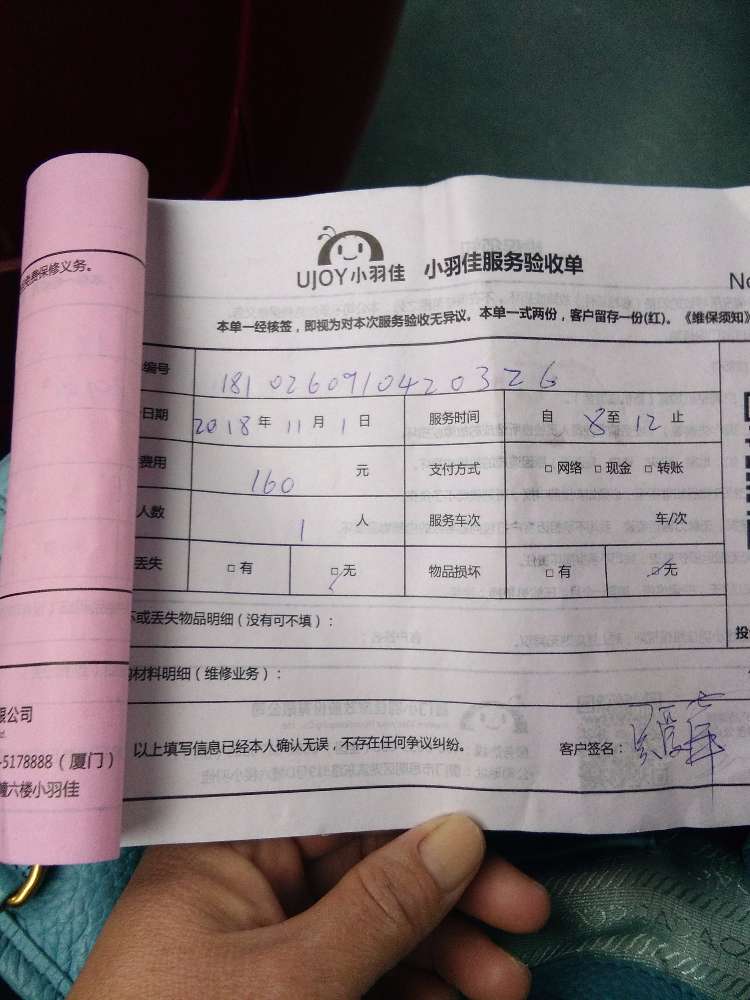 免费保修义务。
UJOY小羽佳 小羽佳服务验收单
No
本单一经核签，即视为对本次服务验收无异议。本单一式两份，客户留存一份(红)。《维保须知》
编号 181026091042 0326
日期 2018年 11月 1日 服务时间 自 8 至 12 止
费用 160 元 支付方式 □ 网络 □ 现金 □ 转账
人数 1 人 服务车次 车/次
丢失 □ 有 □ 无 物品损坏 □ 有 □ 无
或丢失物品明细（没有可不填）：
材料明细（维修业务）：
投
限公司
以上填写信息已经本人确认无误，不存在任何争议纠纷。 客户签名：
-5178888（厦门）
六楼小羽佳